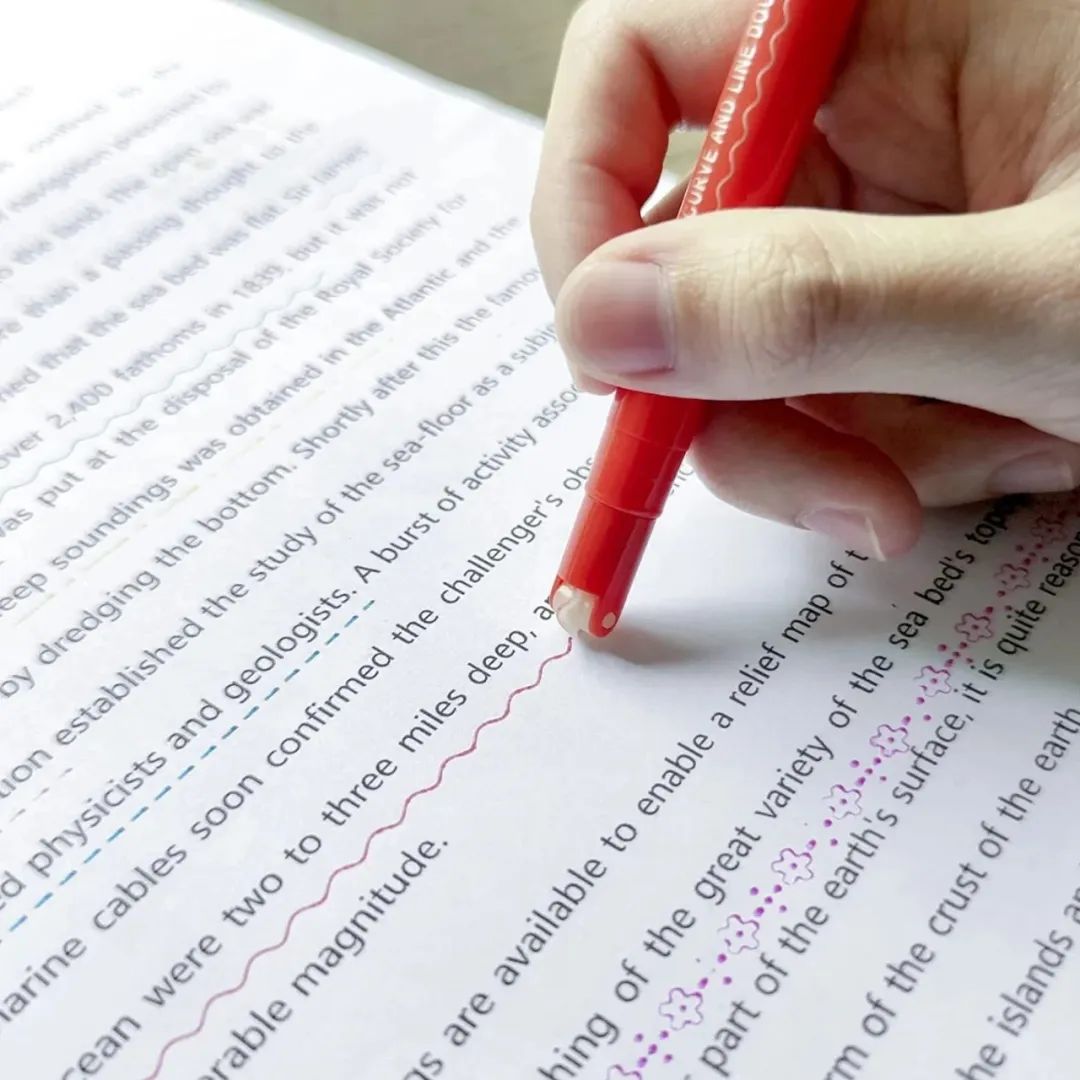 than a passing thought to the
that the sea bed was flat. Sir James
over 2,400 fathoms in 1839, but it was not
was put at the disposal of the Royal Society for
eep soundings was obtained in the Atlantic and the
by dredging the bottom. Shortly after this the famo
tion established the study of the sea-floor as a subj
ed physicists and geologists. A burst of activity asso
marine cables soon confirmed the challenger's obs
cean were two to three miles deep, a
erable magnitude.
gs are available to enable a relief map of t
hing of the great variety of the sea bed's topo
part of the earth's surface, it is quite reason
rm of the crust of the earth
he islands a
CURVE AND LINE DOU